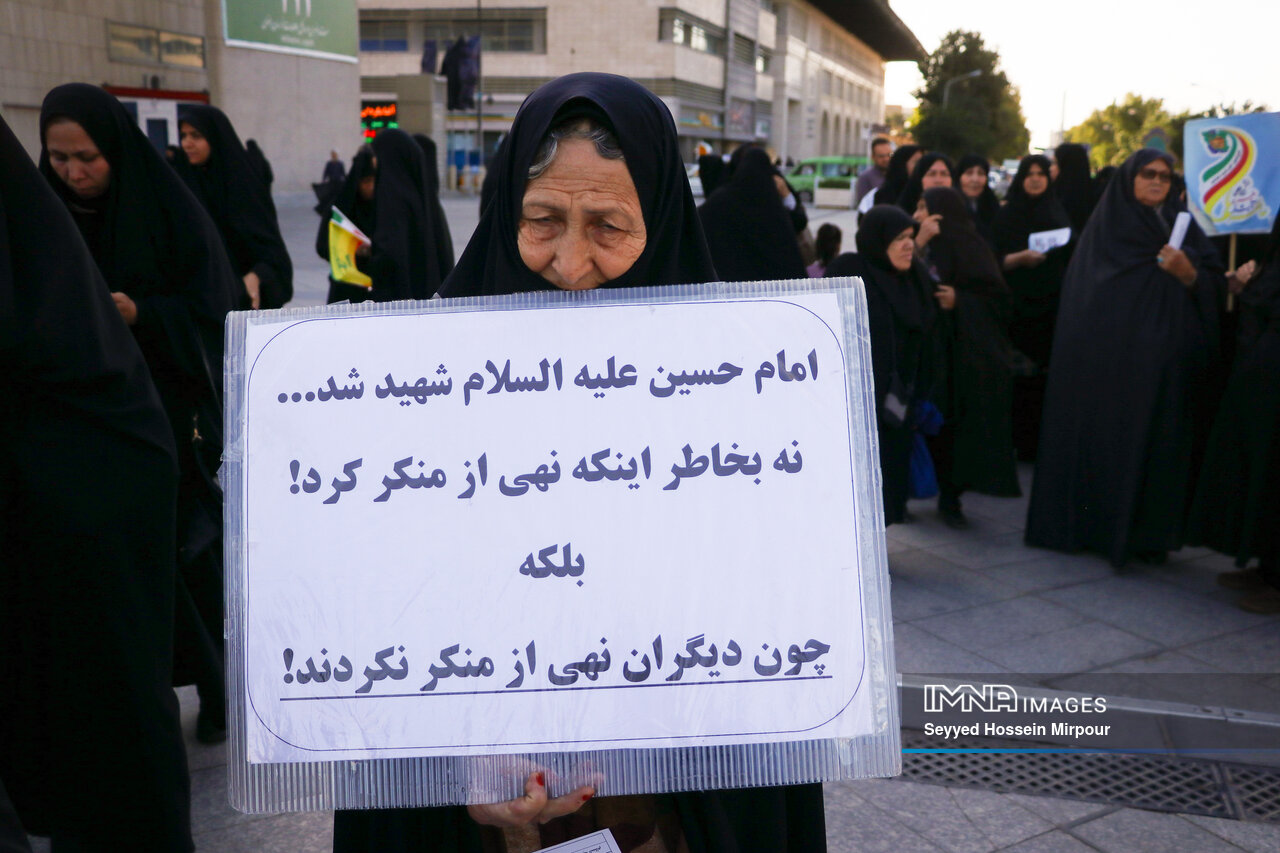 امام حسین علیه السلام شهید شد...
نه بخاطر اینکه نهی از منکر کرد!
بلکه
چون دیگران نهی از منکر نکردند!
IMNA IMAGES
Seyyed Hossein Mirpour